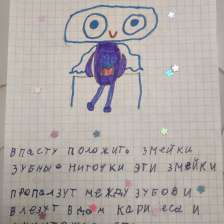 В ПАСТУ ПОЛОЖИТЬ ЗМЕЙКИ
ЗУБНЫЕ НИТОЧКИ ЭТИ ЗМЕЙКИ
ПРОПОЛЗУТ МЕЖДУ ЗУБОВ И
ВЛЕЗУТ В ДОМ КАРИЕСА И